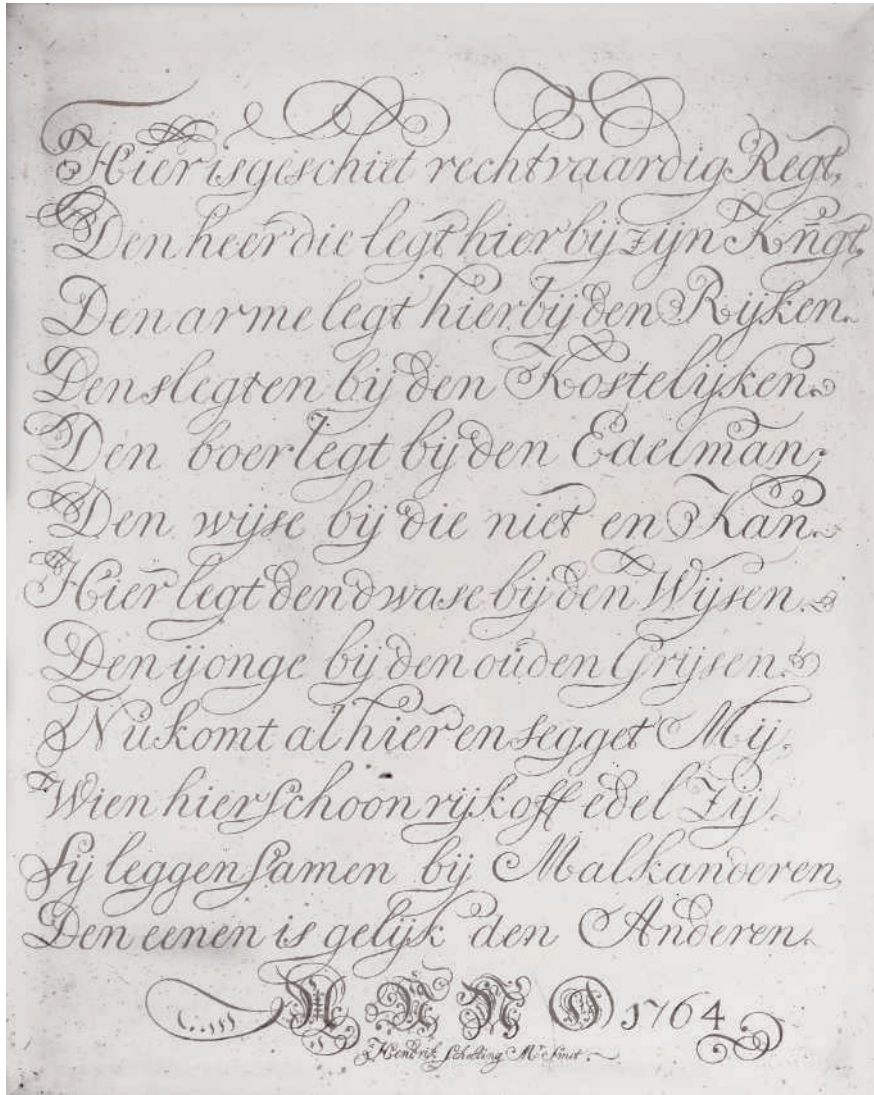 Hier is geschiet rechtvaardig Regt,
Den heer die legt hier bij zijn Kngt,
Den arme legt hier bij den Rijken.
Den slegten bij den Kostelijken.
Den boer legt bij den Edelman;
Den wijse bij die niet en Kan.
Hier legt den dwase bij den Wijsen.
Den ijonge bij den ouden Grijsen.
Nu komt al hier en segget Mij.
Wien hier schoon rijk off edel Zij.
Sij leggen samen bij Malkanderen,
Den eenen is gelijk den Anderen.
ANNO 1764
Hendrik Schelling Mr Smit.